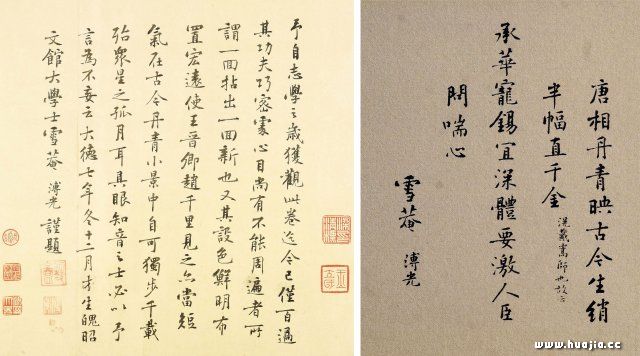 予自志學之歲獲觀此卷迄今已僅百過
其功夫巧密處心目尚有不能周遍者所
謂一回拈出一回新也又其設色鮮明布
置宏遠使王晉卿趙千里見之亦當短
氣在古今丹青小景中自可獨步千載
殆眾星之孤月耳具眼知音之士必以予
言為不妄云大德七年冬十二月才生魄昭
文館大學士雪菴溥光謹題
唐相丹青映古今生綃
半幅直千金滉戴嵩師也故云
承華寵錫宜深體要激人臣
問喘心
雪菴溥光
www.huajia.cc